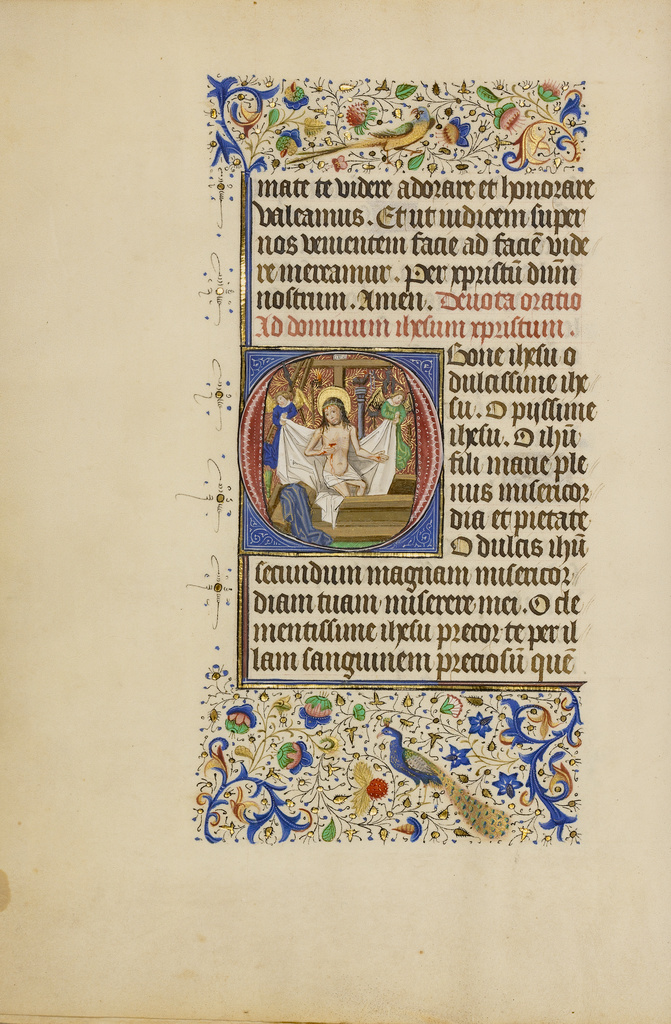 mate te videre adorare et honorare
valeamus. Et ut iudicem super
nos venientem facie ad faciē vide
re mereamur. Per xpristū dūm
nostrum. Amen. Devota oratio
Ad dominum ihesum xpristum.
O Bone ihesu o
dulcissime ihe
su. O pyssime
ihesu. O ihū
fili marie ple
nus misericor
dia et pietate
O dulcis ihū
secundum magnam misericor
diam tuam miserere mei. O cle
mentissime ihesu precor te per il
lam sanguinem preciosū quē